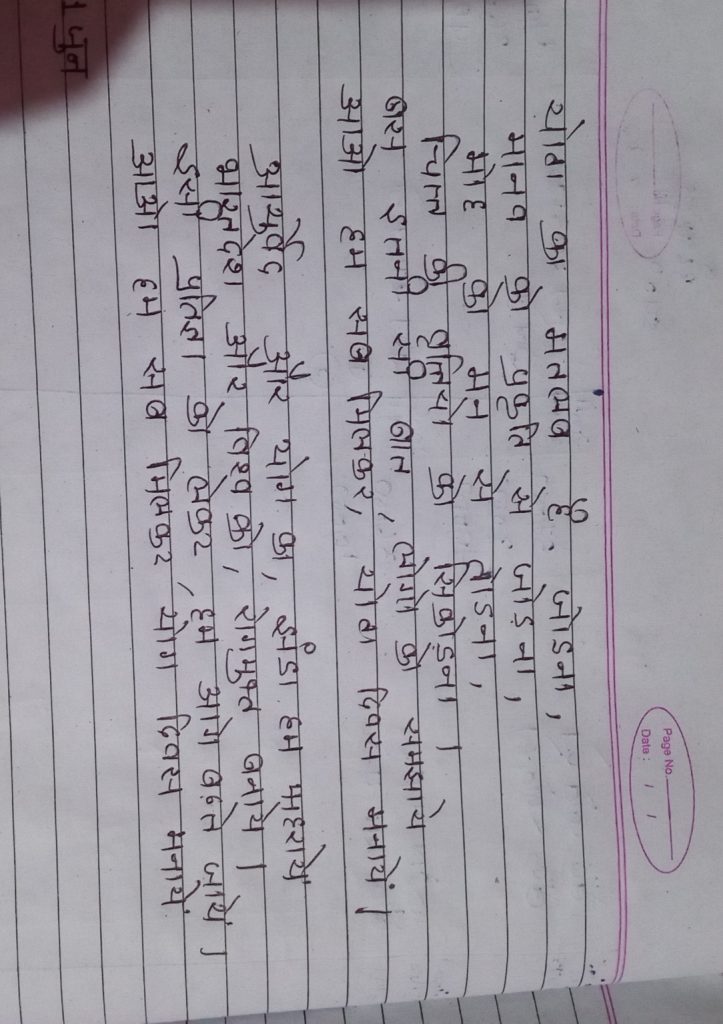 Page No.
Date : / /
योग का मतलब है. जोडना,
मानव को प्रकृति से जोडना,
मोह का मन से तोडना,
चित्त की वृतियो को सिकोडना ।
बस इतनी सी बात, लोगो को समझाये
आओ हम सब मिलकर, योग दिवस मनायें ।
आयुर्वेद और योग का, झंडा हम फहरायें
भारतदेश और विश्व को, रोगमुक्त बनाये ।
इसी प्रतिज्ञा को लेकर, हम आगे बढते जाये ।
आओ हम सब मिलकर योग दिवस मनायें
1 जून